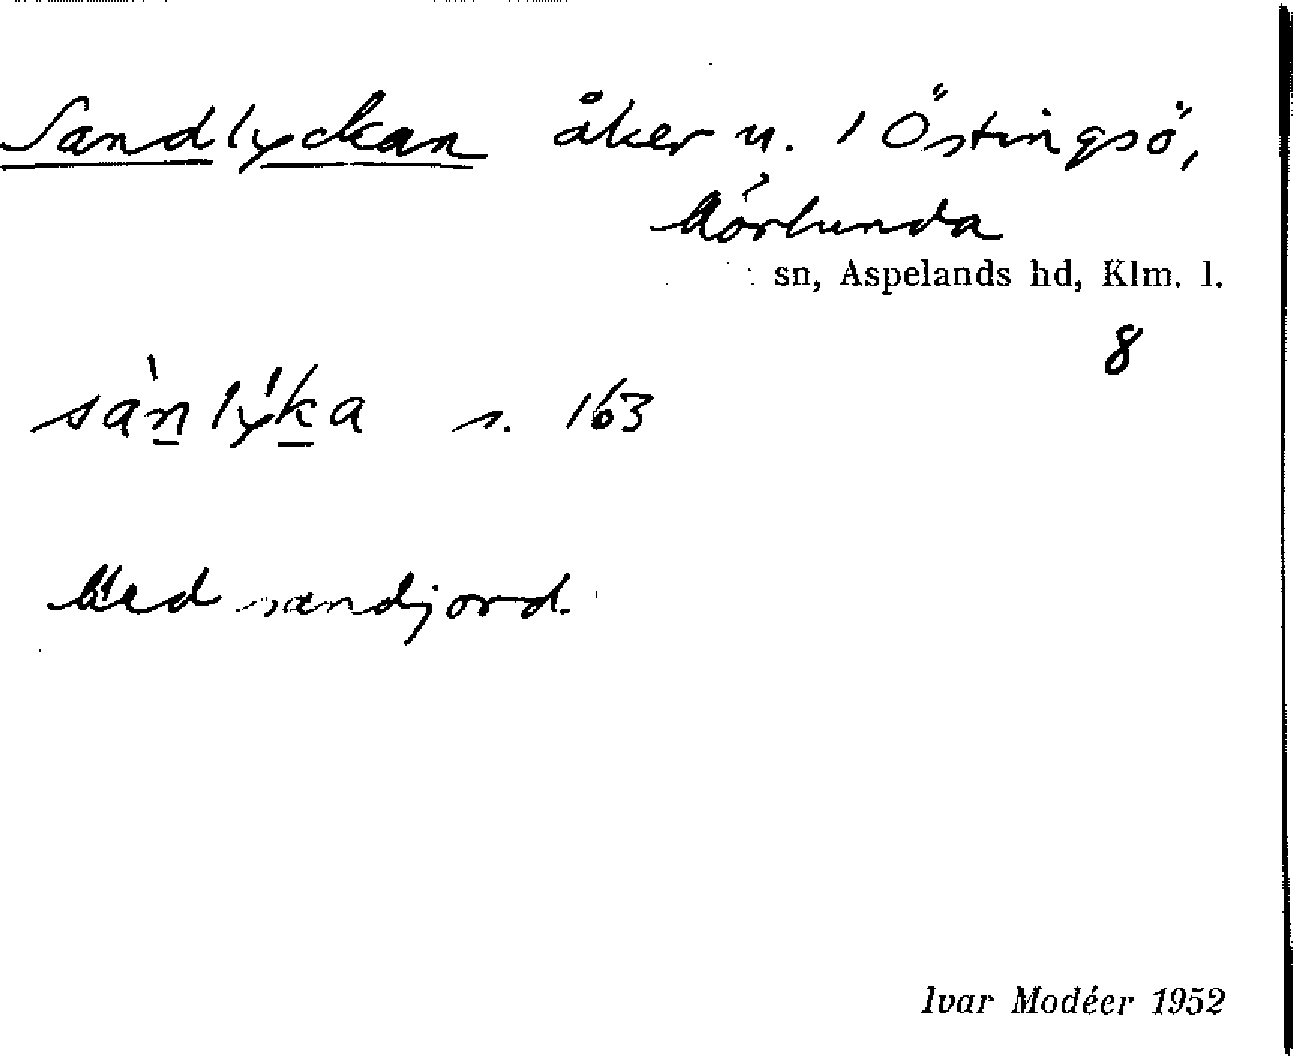 Sandlyckan åker u. 1 Östingsö,
Mörlunda
sn, Aspelands hd, Klm. l.
8
sàn̲lýk̲a s. 163
Med sandjord.
Ivar Modéer 1952